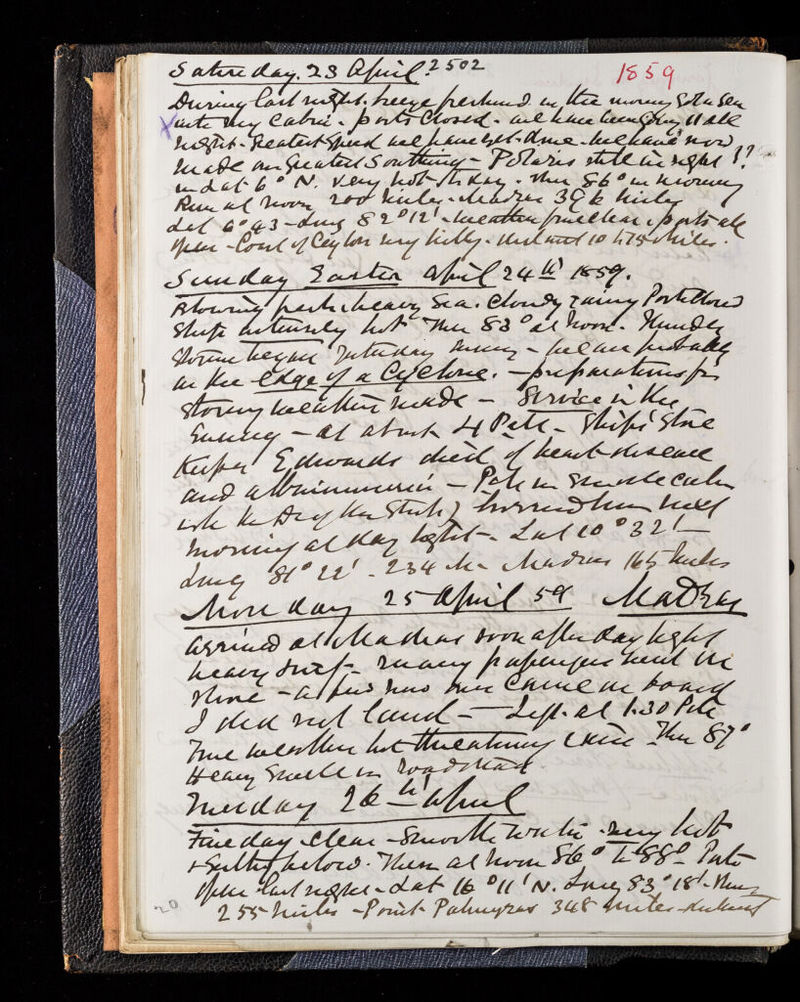 Saturday. 23 April. 2502 1859
During last night. breeze freshened. in the morning Got a Sea
X into my cabin. ports closed. we have been going 11 all
night. Greatest Speed we have yet done. we have now
made our greatest Southing - Polaris still in sight !?
in Lat 6° N. very hot th day. Ther 86° in morning
Run at noon 200 miles. Madras 396 miles
Lat 6°43 - Long 82°12' - weather fine clear, ports all
open - Coast of Ceylon very hilly. distant 10 to 15 miles.
Sunday Easter April 24th 1859.
Blowing fresh, heavy Sea. Cloudy rainy Ports closed
Ship intensely hot Ther 83° at noon. Thunder
Storm began yesterday evening - we are probably
on the edge of a Cyclone. - preparations for
stormy weather made - Service in the
Evening - at about 4 P.M. - Ship's Store
Keeper Edwards died of heart disease
and albuminuria
morning at day light - Lat 10°32'
Long 81°22' - 234 M - Madras 165 miles
Monday 25 April 59 Madras
arrived at Madras soon after day light
heavy surf - many passengers went on
shore - a few new ones came on board
I did not land - Left at 1.30 P.M.
Fine weather hot threatening - Ther 87°
Heavy Swell in roadstead
Tuesday 26th April
Fine day - clear - Smooth - very hot
& Sultry below. Ther at noon 86° to 88° - Ports
open last night - Lat 16°11' N. Long 83°18' - Run
255 miles - Point Palmyras 348 miles distant
20